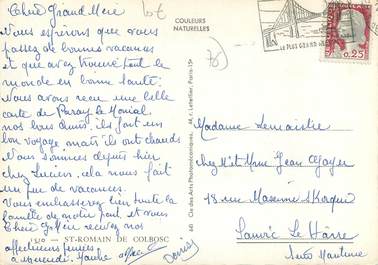 Chère Grand Mère
Nous espérons que vous
passez de bonnes vacances
et que avez trouvé tout le
monde en bonne santé.
Nous avons reçu une belle
carte de Paray le Monial,
nos bons amis, ils font un
bon voyage mais ils ont chauds
Nous sommes depuis hier
chez Lucien, cela nous fait
un peu de vacances.
Vous embrasserez bien toute la
famille de notre part et vous
Chère G-Mère recevez nos
affectueuses pensées,
1510 - ST-ROMAIN DE COLBOSC
COULEURS
NATURELLES
LE PLUS GRAND
0,25
Cie des Arts Photomécaniques, 44, r. Letellier, Paris-15e
Madame Lemaistre
chez Mr et Mme Jean
18 rue Maxime
Sanvic Le Hâvre
Seine Maritime